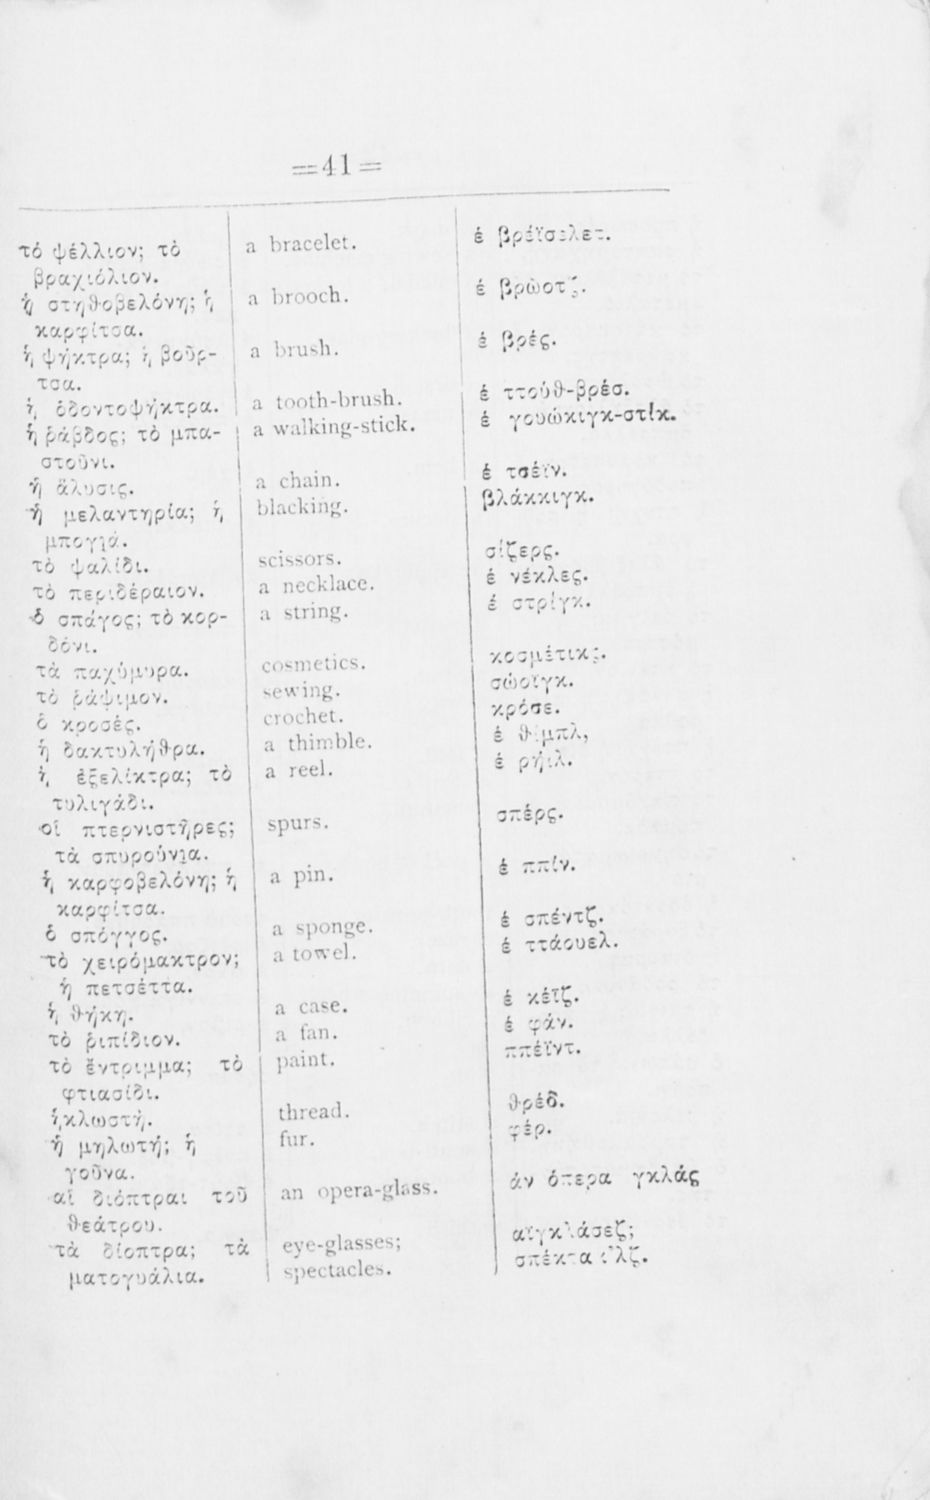 =41=
τό ψέλλιον; τὸ a bracelet. ἐ βρέϊσελετ.
βραχιόλιον.
ἡ στηθοβελόνη; ἡ a brooch. ἐ βρὼοτζ.
καρφίτσα.
ἡ ψήκτρα; ἡ βοῦρ- a brush. ἐ βρές.
τσα.
ἡ ὀδοντοψήκτρα. a tooth-brush. ἐ ττούθ-βρέσ.
ἡ ῥάβδος; τὸ μπα- a walking-stick. ἐ γουώκιγκ-στίκ.
στοῦνι.
ἡ ἅλυσις. a chain. ἐ τσέϊν.
ἡ μελαντηρία; ἡ blacking. βλάκκιγκ.
μπογιά.
τὸ ψαλίδι. scissors. σίζερς.
τὸ περιδέραιον. a necklace. ἐ νέκλες.
ὁ σπάγος; τὸ κορ- a string. ἐ στρίγκ.
δόνι.
τὰ παχύμυρα. cosmetics. κοσμέτικς.
τὸ ῥάψιμον. sewing. σώοϊγκ.
ὁ κροσές. crochet. κρόσε.
ἡ δακτυλήθρα. a thimble. ἐ θίμπλ,
ἡ ἐξελίκτρα; τὸ a reel. ἐ ρήιλ.
τυλιγάδι.
οἱ πτερνιστῆρες; spurs. σπέρς.
τὰ σπυρούνια.
ἡ καρφοβελόνη; ἡ a pin. ἐ ππίν.
καρφίτσα.
ὁ σπόγγος. a sponge. ἐ σπέντζ.
τὸ χειρόμακτρον; a towel. ἐ ττάουελ.
ἡ πετσέττα.
ἡ θήκη. a case. ἐ κέϊζ.
τὸ ῥιπίδιον. a fan. ἐ φάν.
τὸ ἔντριμμα; τὸ paint. ππέϊντ.
φτιασίδι.
ἡκλωστή. thread. θρέδ.
ἡ μηλωτή; ἡ fur. φέρ.
γοῦνα.
αἱ διόπτραι τοῦ an opera-glass. ἀν ὄπερα γκλάς
θεάτρου.
τὰ δίοπτρα; τὰ eye-glasses; αϊγκλάσεζ;
ματογυάλια. spectacles.